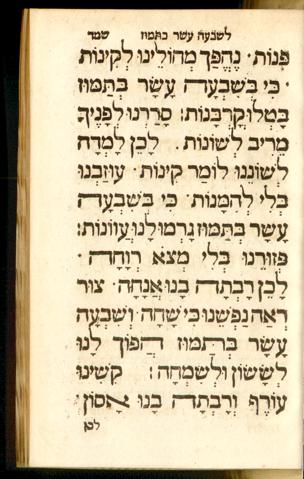 לשבעה עשר בתמוז שמד
פִּנּוֹת· נֶהְפַּךְ מְחוֹלֵינוּ לְקִינוֹת
· כִּי בְּשִׁבְעָה עָשָׂר בְּתַמּוּז
בָּטְלוּ קָרְבָּנוֹת: סָרַרְנוּ לְפָנֶיךָ
מֵרִיב לְשׁוֹנוֹת. לָכֵן לָמְדָה
לְשׁוֹנֵנוּ לוֹמַר קִינוֹת· עוּזַּבְנוּ
בְּלִי לְהִמָּנוֹת· כִּי בְּשִׁבְעָה
עָשָׂר בְּתַמּוּז גָּרְמוּ לָנוּ עֲווֹנוֹת:
פּוּזַּרְנוּ בְּלִי מְצֹא רְוָחָה·
לָכֵן רָבְתָה בָנוּ אֲנָחָה· צוּר
רְאֵה נַפְשֵׁנוּ כִּי שָׁחָה· וְשִׁבְעָה
עָשָׂר בְּתַמּוּז הֲפוֹךְ לָנוּ
לְשָׂשׂוֹן וּלְשִׂמְחָה: קִשִּׁינוּ
עוֹרֶף וְרָבְתָה בָנוּ אָסוֹן·
לכן